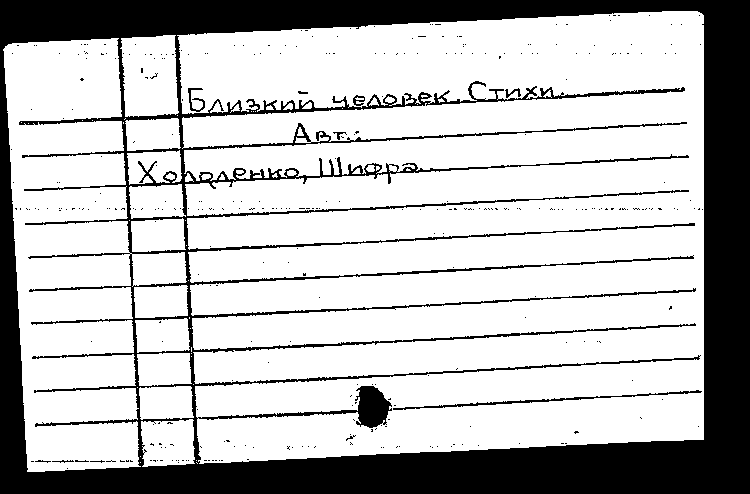 Близкий человек. Стихи.
Авт.:
Холоденко, Шифра.